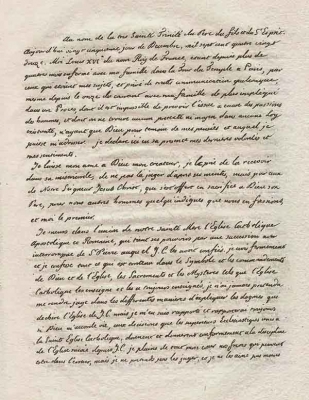 Au nom de la tres Sainte Trinité du Pere du fils et du St Esprit.
Aujourd'hui vingt cinquieme jour de Decembre, mil sept cent quatre vingt
douze. Moi Louis XVIe du nom Roy de France, etant depuis plus de
quatre mois enfermé avec ma famille dans la Tour du Temple a Paris, par
ceux qui etoient mes sujets, et privé de toute communication quelconque,
meme depuis le onze du courant avec ma famille de plus impliqué
dans un Procès dont il est impossible de prevoir l'issue a cause des passions
des hommes, et dont on ne trouve aucun pretexte ni moyen dans aucune Loy
existante, n'ayant que Dieu pour temoin de mes pensées et auquel je
puisse m'adresser. je declare ici en sa presence mes dernieres volontés et
mes sentiments.
Je laisse mon ame a Dieu mon createur, je le prie de la recevoir
dans sa misericorde, de ne pas la juger d'apres ses merites, mais par ceux
de Notre Seigneur Jesus Christ, qui s'est offert en sacrifice a Dieu son
Pere, pour nous autres hommes quelqu'indignes que nous en fussions,
et moi le premier.
Je meurs dans l'union de notre sainte Mere l'Eglise Catholique
Apostolique et Romaine, qui tient ses pouvoirs par une succession non
interrompue de St Pierre auquel J.C. les avoit confiés. je crois fermement
et je confesse tout ce qui est contenu dans le Symbole et les commandements
de Dieu et de l'Eglise, les Sacrements et les Mysteres tels que l'Eglise
Catholique les enseigne et les a toujours enseignés. je n'ai jamais pretendu
me rendre juge dans les differentes manieres d'expliquer les dogmes qui
dechire l'Eglise de J.C. mais je m'en suis rapporté et rapporterai toujours
si Dieu m'accorde vie, aux decisions que les superieurs Ecclesiastiques unis a
la Sainte Eglise Catholique, donnent et donneront conformement a la discipline
de l'Eglise suivie depuis J.C. je plains de tout mon coeur nos freres qui peuvent
etre dans l'erreur, mais je ne pretends pas les juger, et je ne les aime pas moins